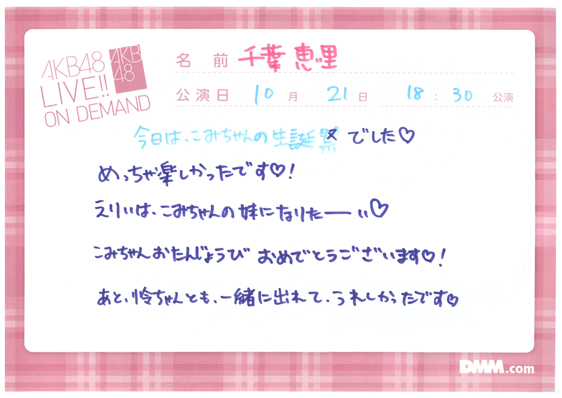 AKB48
LIVE!!
ON DEMAND
AKB
48
名前 千葉恵里
公演日 10月 21日 18:30 公演
今日は、こみちゃんの生誕祭でした♡
めっちゃ楽しかったです♡!
えりいは、こみちゃんの妹になりたーーい♡
こみちゃんおたんじょうび おめでとうございます♡!
あと、怜ちゃんとも、一緒に出れて、うれしかったです♡
DMM.com